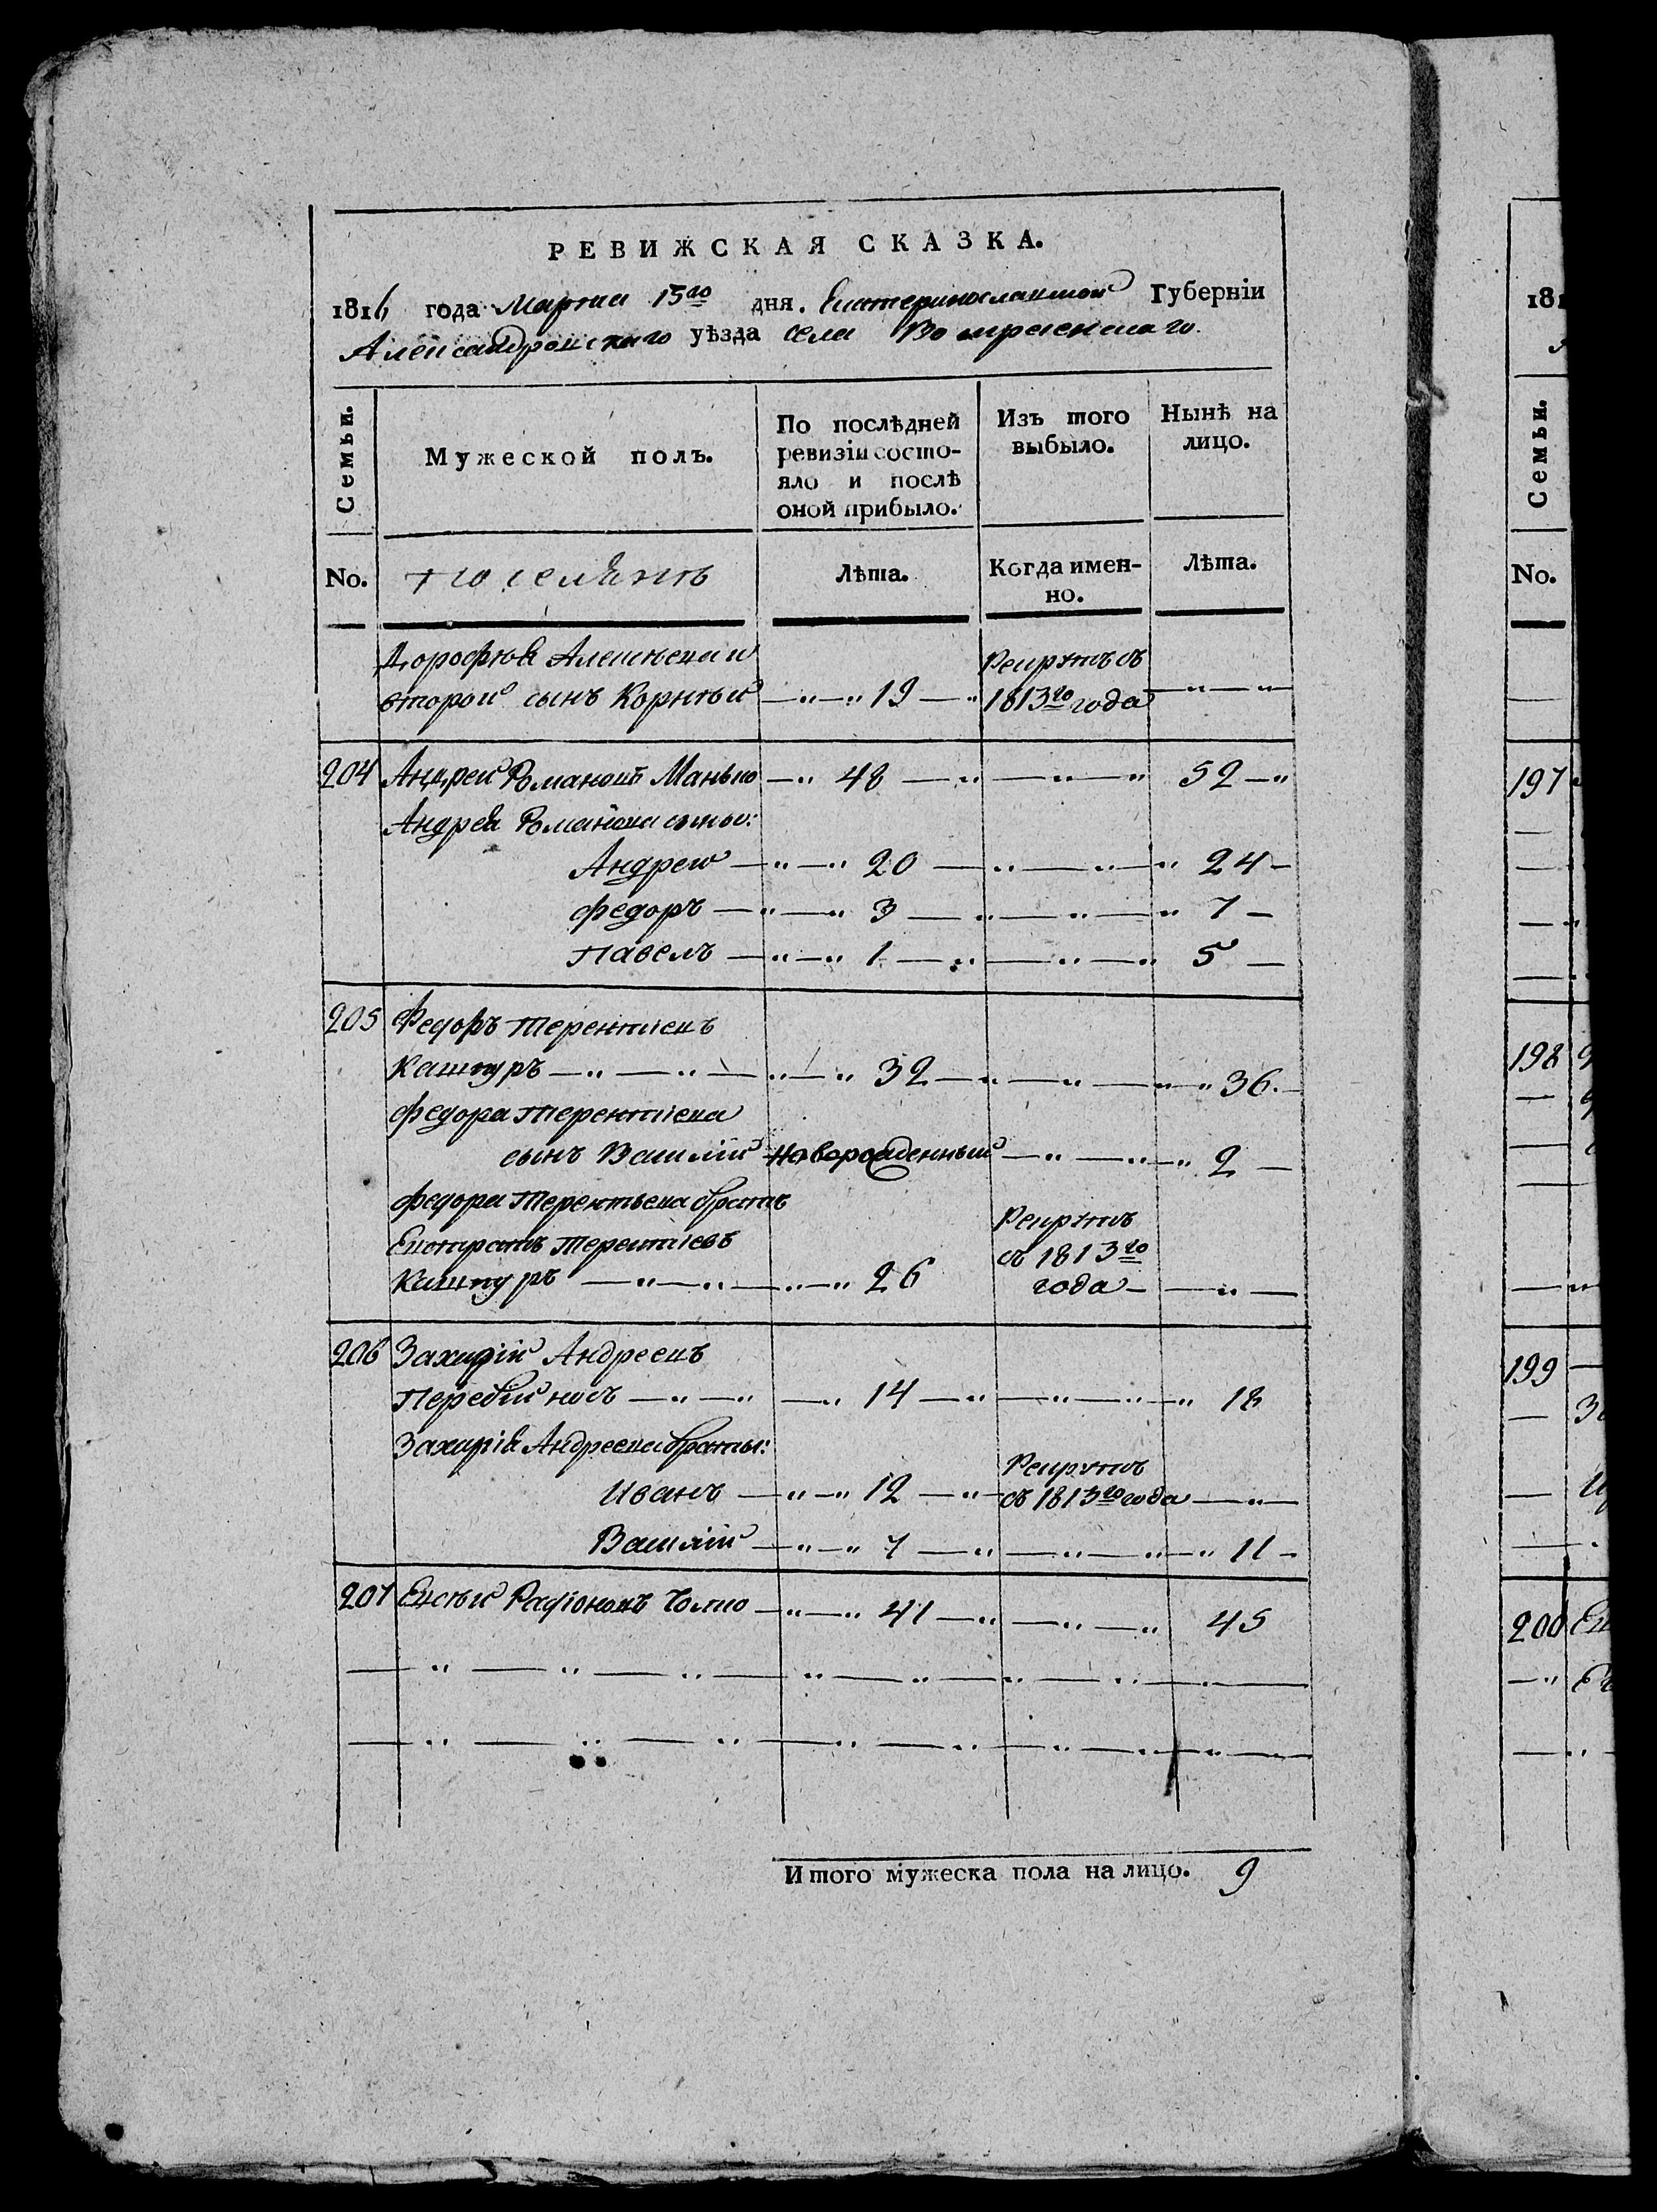 РЕВИЖСКАЯ СКАЗКА.
1816 года Марта 15го дня. Екатеринославской Губерніи
Александровскаго уѣзда села Воскресенскаго.
Семьи.
Мужеской полъ.
По послѣдней
ревизіи состо-
яло и послѣ
оной прибыло.
Изъ того
выбыло.
Нынѣ на
лицо.
No.
поселянъ
Лѣта.
Когда имен-
но.
Лѣта.
Дорофѣя Алексѣева
Рекрутъ въ
второй сынъ Корнѣй — „ — „ 19 — „ 1813го года — „ — „
204 Андрей Романовъ Манько — „ 48 — „ — „ — „ 52 — „
Андрея Романова сыны:
Андрей — „ — „ 20 — „ — „ — „ 24 —
Федоръ — „ — „ 3 — „ — „ — „ 7 —
Павелъ — „ — „ 1 — „ — „ — „ 5 —
205 Федоръ Терентіевъ
Кашпуръ — „ — „ — „ — „ 32 — „ — „ — „ — „ 36. —
Федора Терентіева
сынъ Василій Новорожденный — „ — „ — „ 2 —
Федора Терентьева братъ
Рекрутъ
Евстратъ Терентіевъ
въ 1813го
Кашпуръ — „ — „ — „ — „ 26 года — — „ —
206 Захарій Андреевъ
Перебійносъ — „ — „ — „ 14 — „ — „ — „ — „ 18
Захарія Андреева братья:
Рекрутъ
Иванъ — „ — „ 12 — „ — въ 1813го года — „ —
Василій — „ — „ 7 — „ — „ — „ — „ 11 —
207 Евсѣй Радіоновъ — „ — „ 41 — „ — „ — „ 45
Итого мужеска пола на лицо. 9
181
Семьи.
No.
197
198
199
200